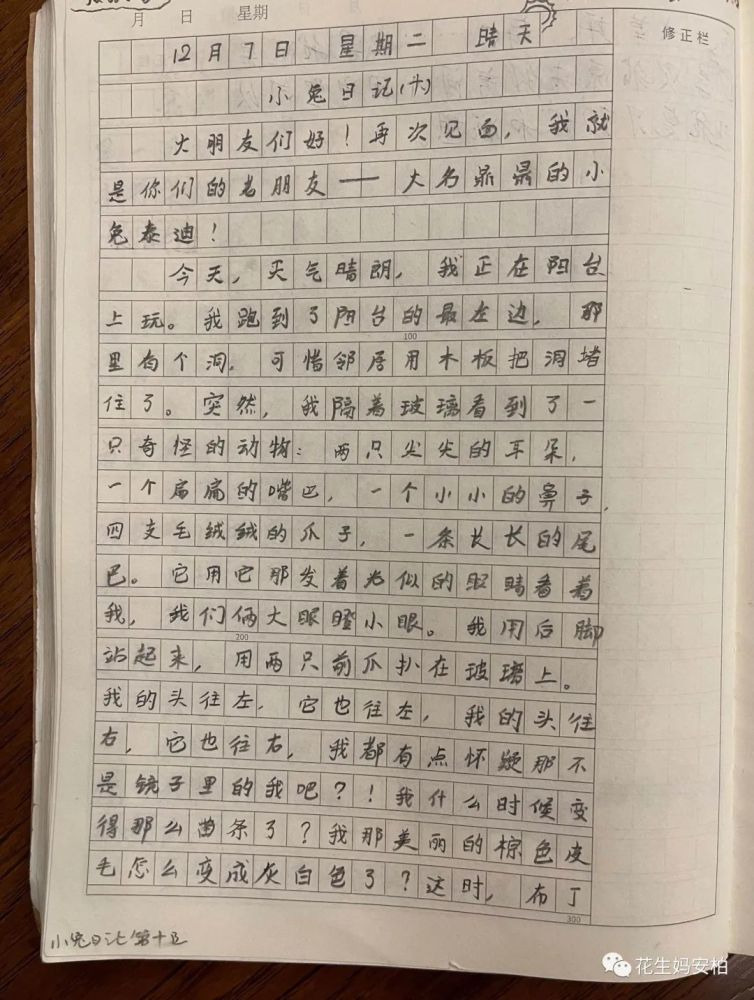 月 日 星期
修正栏
12月7日 星期二 晴天
小兔日记(十)
大朋友们好！再次见面，我就
是你们的老朋友——大名鼎鼎的小
兔泰迪！
今天，天气晴朗，我正在阳台
上玩。我跑到了阳台的最左边，那
100
里有个洞，可惜邻居用木板把洞堵
住了。突然，我隔着玻璃看到了一
只奇怪的动物：两只尖尖的耳朵，
一个扁扁的嘴巴，一个小小的鼻子，
四支毛绒绒的爪子，一条长长的尾
巴。它用它那发着光似的眼睛看着
我，我们俩大眼瞪小眼。我用后脚
200
站起来，用两只前爪扒在玻璃上。
我的头往左，它也往左，我的头往
右，它也往右，我都有点怀疑那不
是镜子里的我吧？！我什么时候变
得那么苗条了？我那美丽的棕色皮
毛怎么变成灰白色了？这时，布丁
300
小兔日记第十五
花生妈安柏